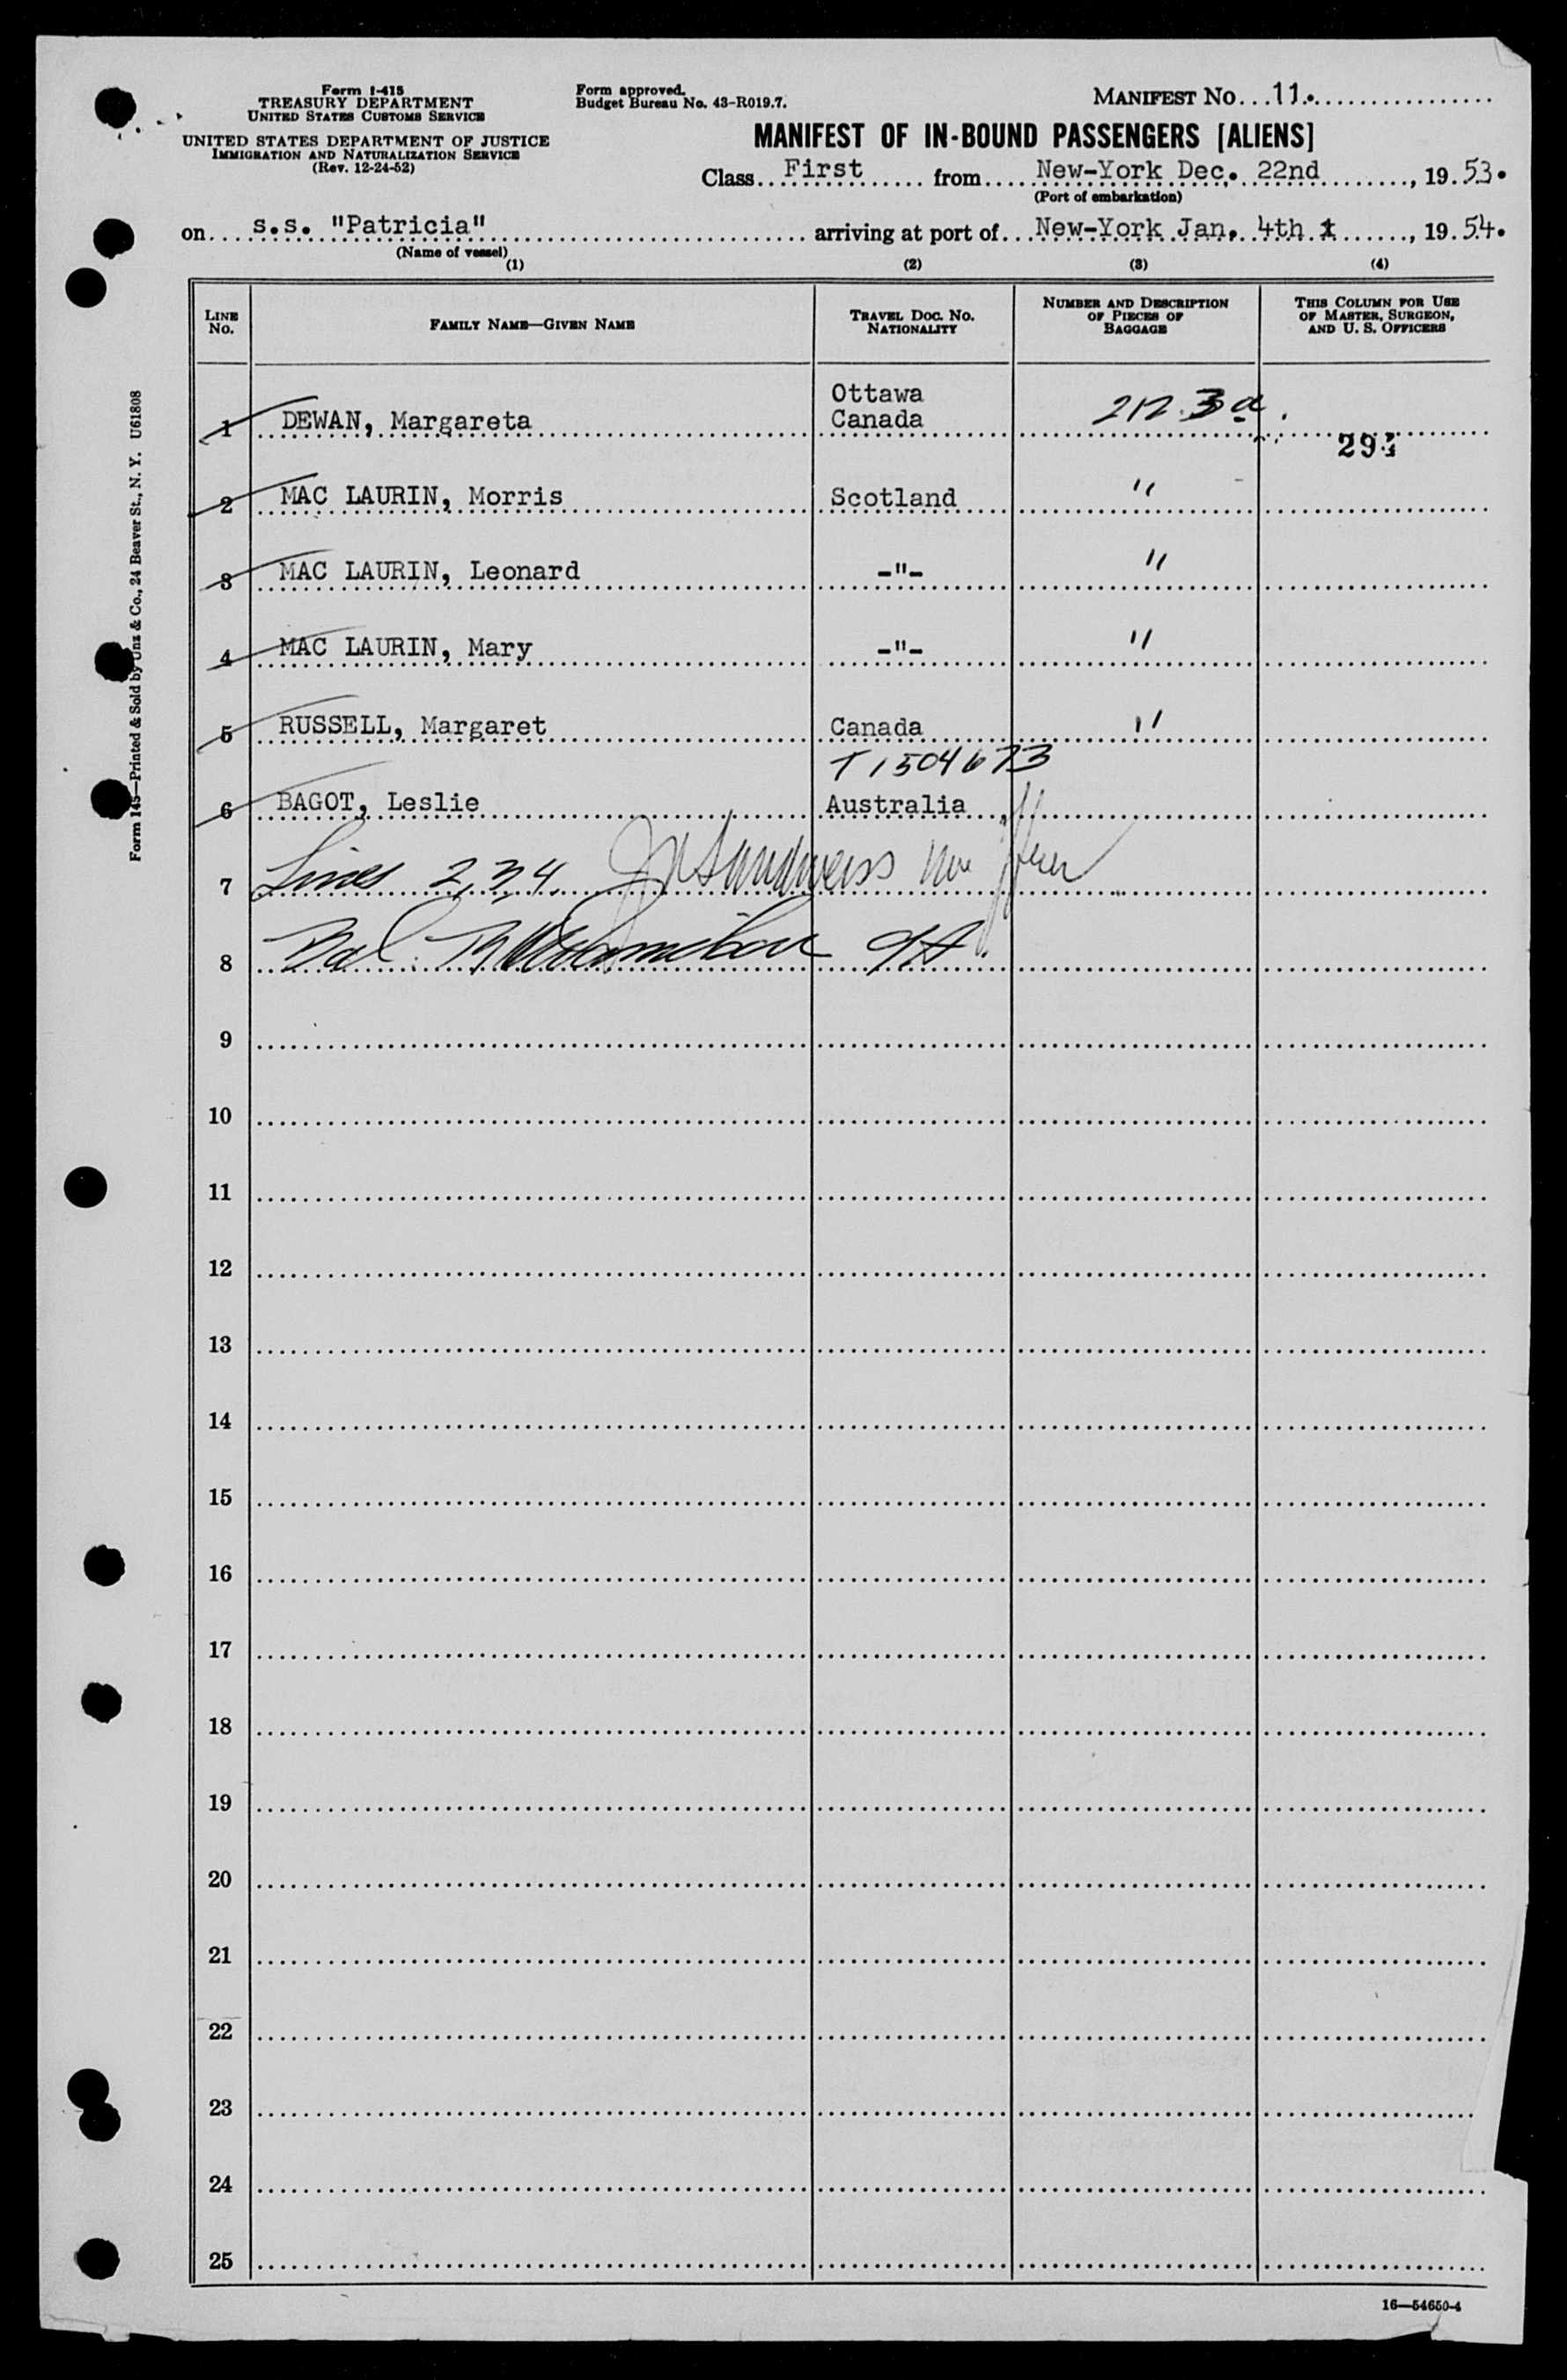 Form I-415
TREASURY DEPARTMENT
UNITED STATES CUSTOMS SERVICE
UNITED STATES DEPARTMENT OF JUSTICE
IMMIGRATION AND NATURALIZATION SERVICE
(Rev. 12-24-52)
Form approved.
Budget Bureau No. 43-R019.7.
MANIFEST NO...11.
MANIFEST OF IN-BOUND PASSENGERS [ALIENS]
Class First from New-York Dec. 22nd, 1953.
(Port of embarkation)
on s.s. "Patricia" arriving at port of New-York Jan. 4th, 1954.
(Name of vessel)
(1) (2) (3) (4)
LINE No. FAMILY NAME—GIVEN NAME TRAVEL DOC. NO. NATIONALITY NUMBER AND DESCRIPTION OF PIECES OF BAGGAGE THIS COLUMN FOR USE OF MASTER, SURGEON, AND U. S. OFFICERS
Ottawa
1 DEWAN, Margareta Canada 212.3a.
29
2 MAC LAURIN, Morris Scotland "
3 MAC LAURIN, Leonard -"- "
4 MAC LAURIN, Mary -"- "
5 RUSSELL, Margaret Canada "
T1504673
6 BAGOT, Leslie Australia
7 Lines 2,3,4.
8 Bal.
9
10
11
12
13
14
15
16
17
18
19
20
21
22
23
24
25
16—54650-4
Form 145—Printed & Sold by Unz & Co., 24 Beaver St., N. Y. U61808